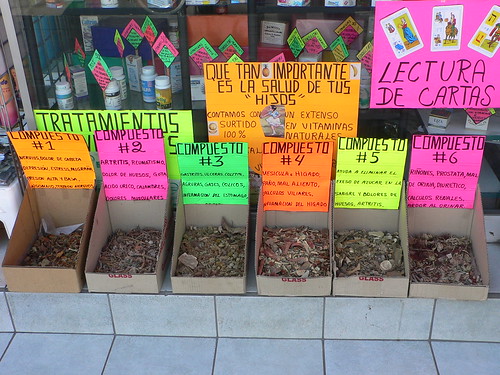 LECTURA
DE CARTAS
QUE TAN IMPORTANTE
ES LA SALUD DE TUS
"HIJOS"
CONTAMOS CON UN EXTENSO
SURTIDO EN VITAMINAS
100% NATURALES
TRATAMIENTOS
COMPUESTO
#1
NERVIOS, DOLOR DE CABEZA
COMPUESTO
#2
ARTRITIS, REUMATISMO,
DOLOR DE HUESOS, GOTA
ACIDO URICO, CALAMBRES,
DOLORES MUSCULARES
COMPUESTO
#3
AGRURAS, GASES, COLICOS,
INFLAMACION DEL ESTOMAGO
COMPUESTO
#4
VESICULA E HIGADO,
MAL ALIENTO,
CALCULOS VILIARES,
INFLAMACION DEL HIGADO
COMPUESTO
#5
AYUDA A ELIMINAR EL
EXESO DE AZUCAR EN LA
SANGRE Y DOLORES DE
HUESOS, ARTRITIS.
COMPUESTO
#6
RIÑONES, PROSTATA, MAL
DE ORIN, DIURETICO,
CALCULOS RENALES,
ARDOR AL ORINAR
GLASS
GLASS
GLASS
GLASS